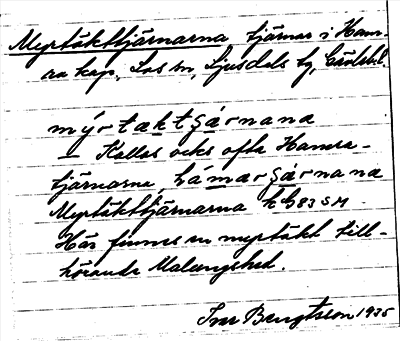 Myrtäkttjärnarna tjärnar i Hamra
kap., Los sn, Ljusdals tg, Gävlebl.
mýrtæktʂärnana
— Kallas ocks ofta Hamra-
tjärnarna, hámarʂärnana
Myrtäkttjärnarna kb 83 SM
Här finnes en myrtäkt till-
hörande Malungshed.
Ivar Bengtsson 1935